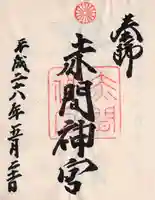 奉拝
赤間神宮
平成二十八年五月二十一日